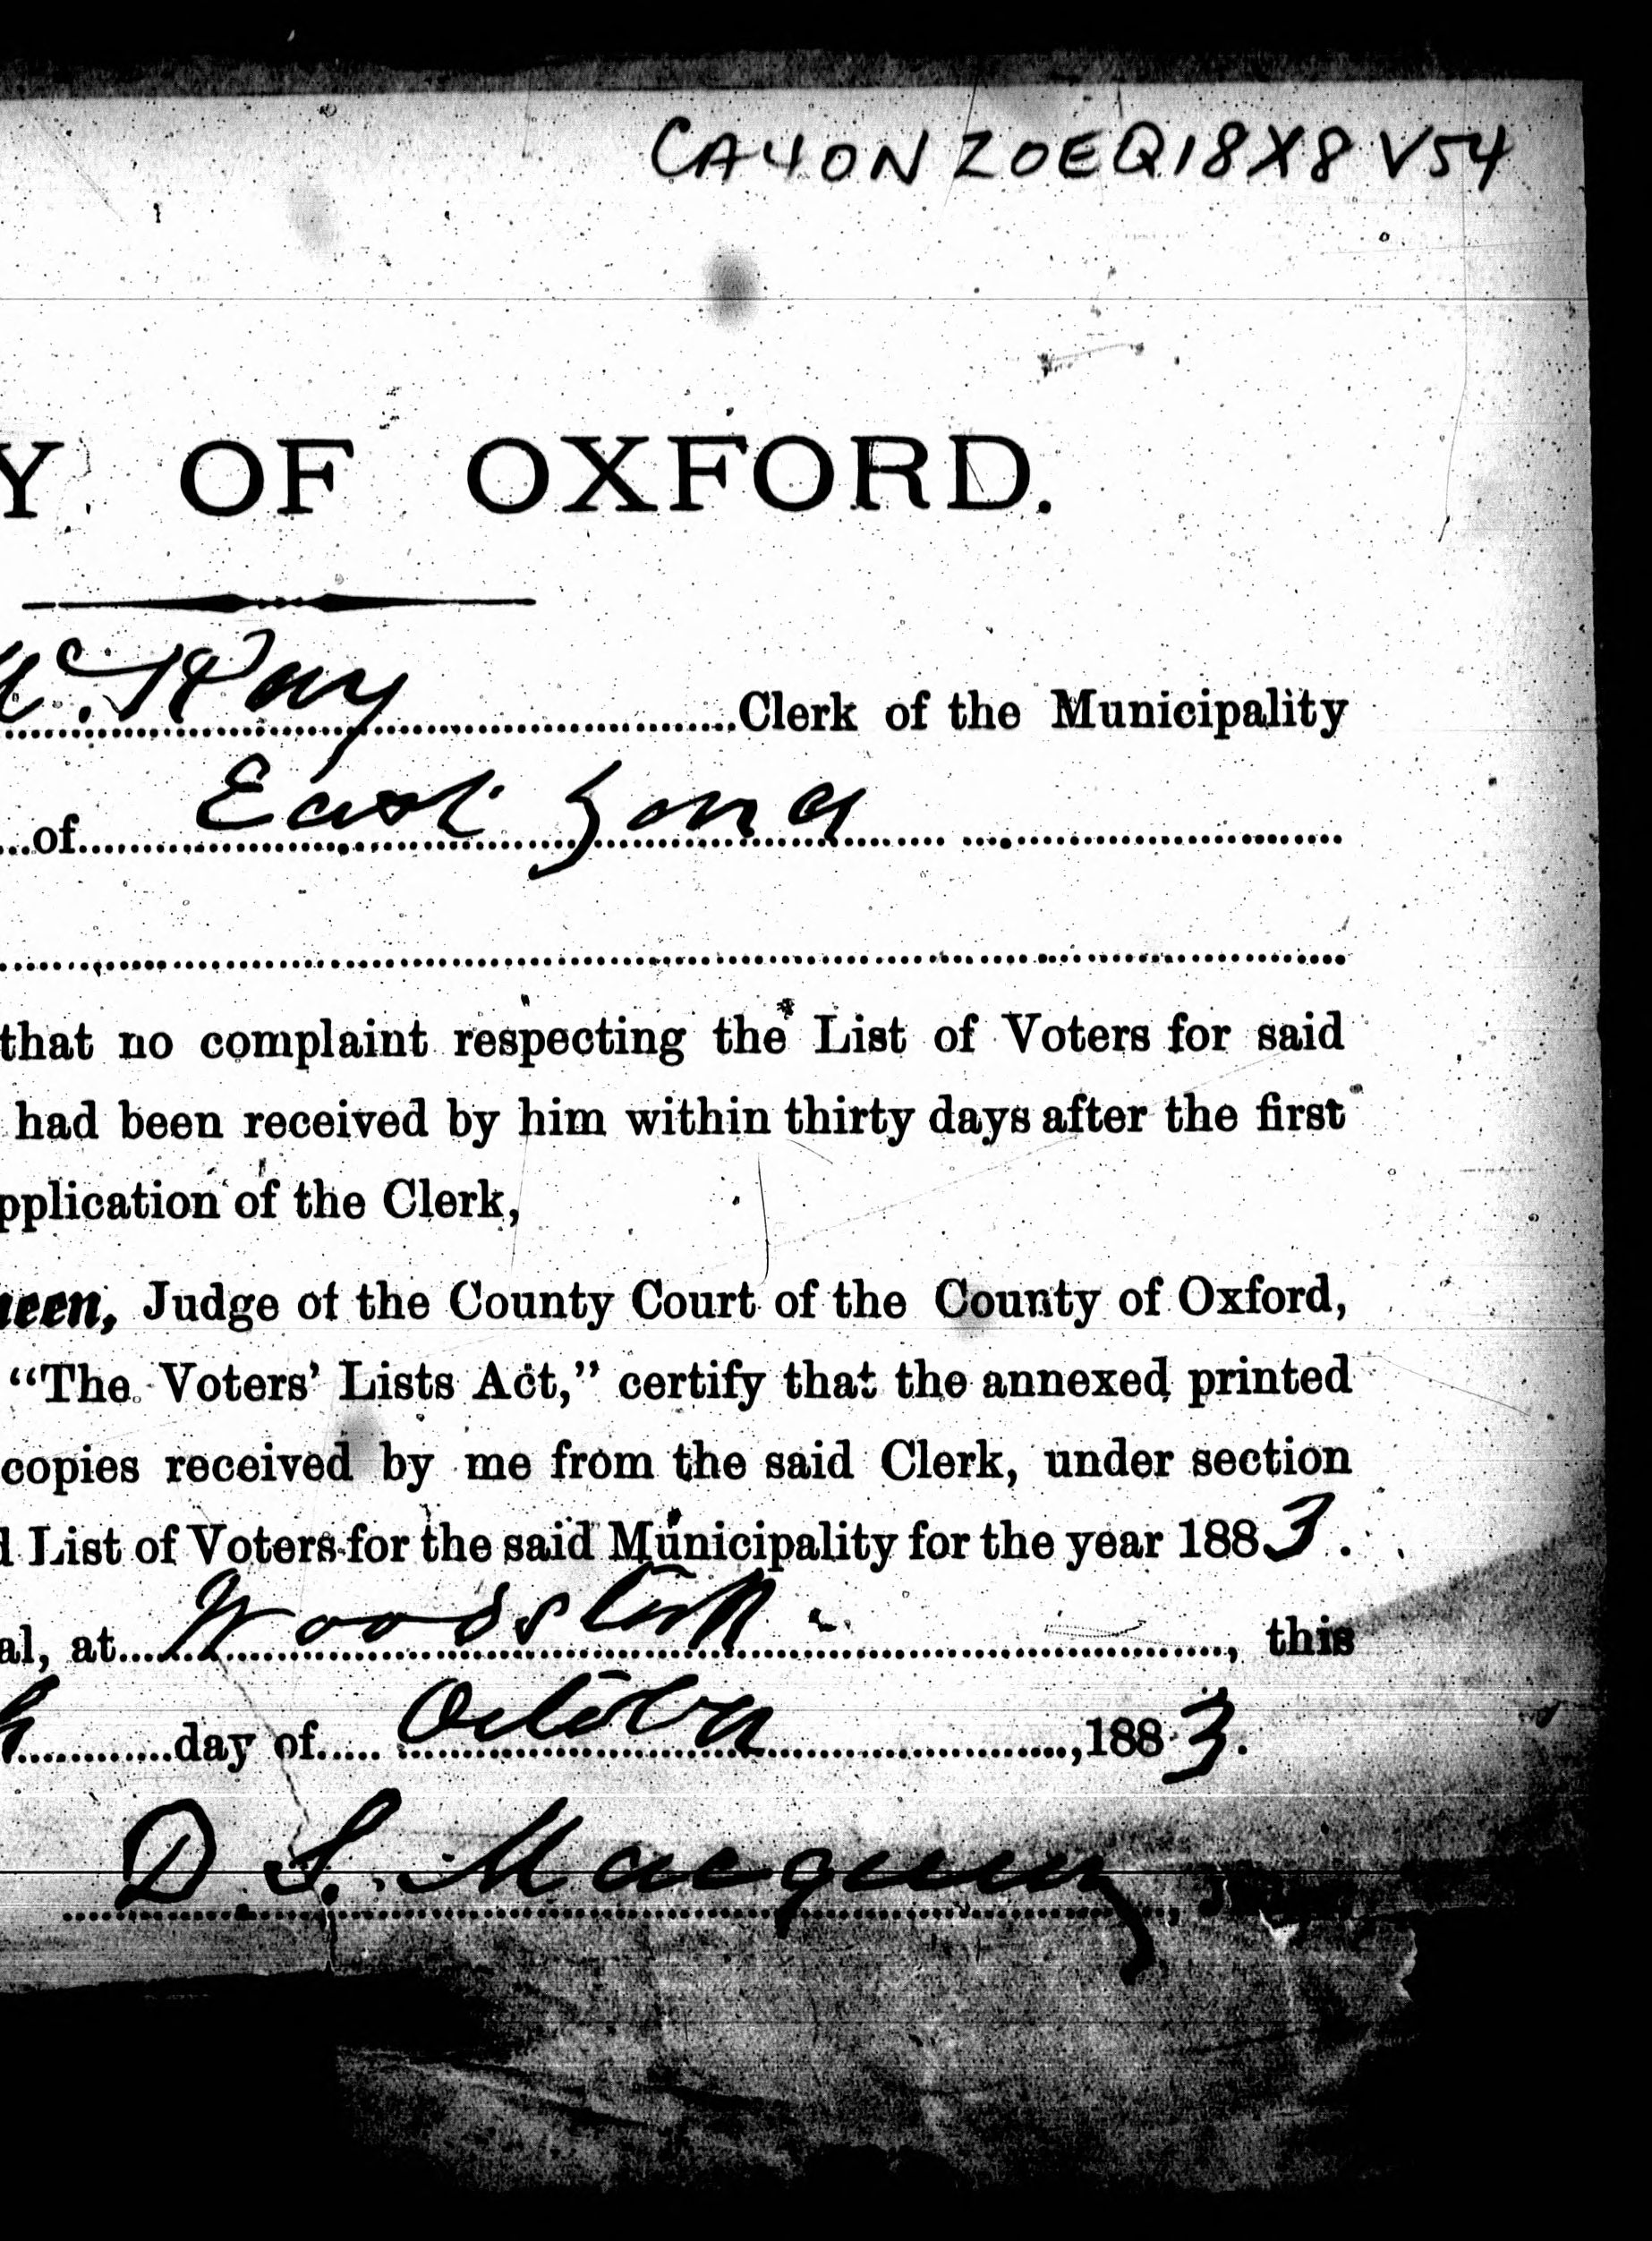 CA4ON ZOEQ18X8 V54
Y OF OXFORD.
McKay Clerk of the Municipality
of East Zorra
that no complaint respecting the List of Voters for said
had been received by him within thirty days after the first
pplication of the Clerk,
ueen, Judge of the County Court of the County of Oxford,
"The Voters' Lists Act," certify that the annexed printed
copies received by me from the said Clerk, under section
d List of Voters for the said Municipality for the year 1883.
al, at Woodstock, this
h day of October, 1883.
D S. Macqueen,